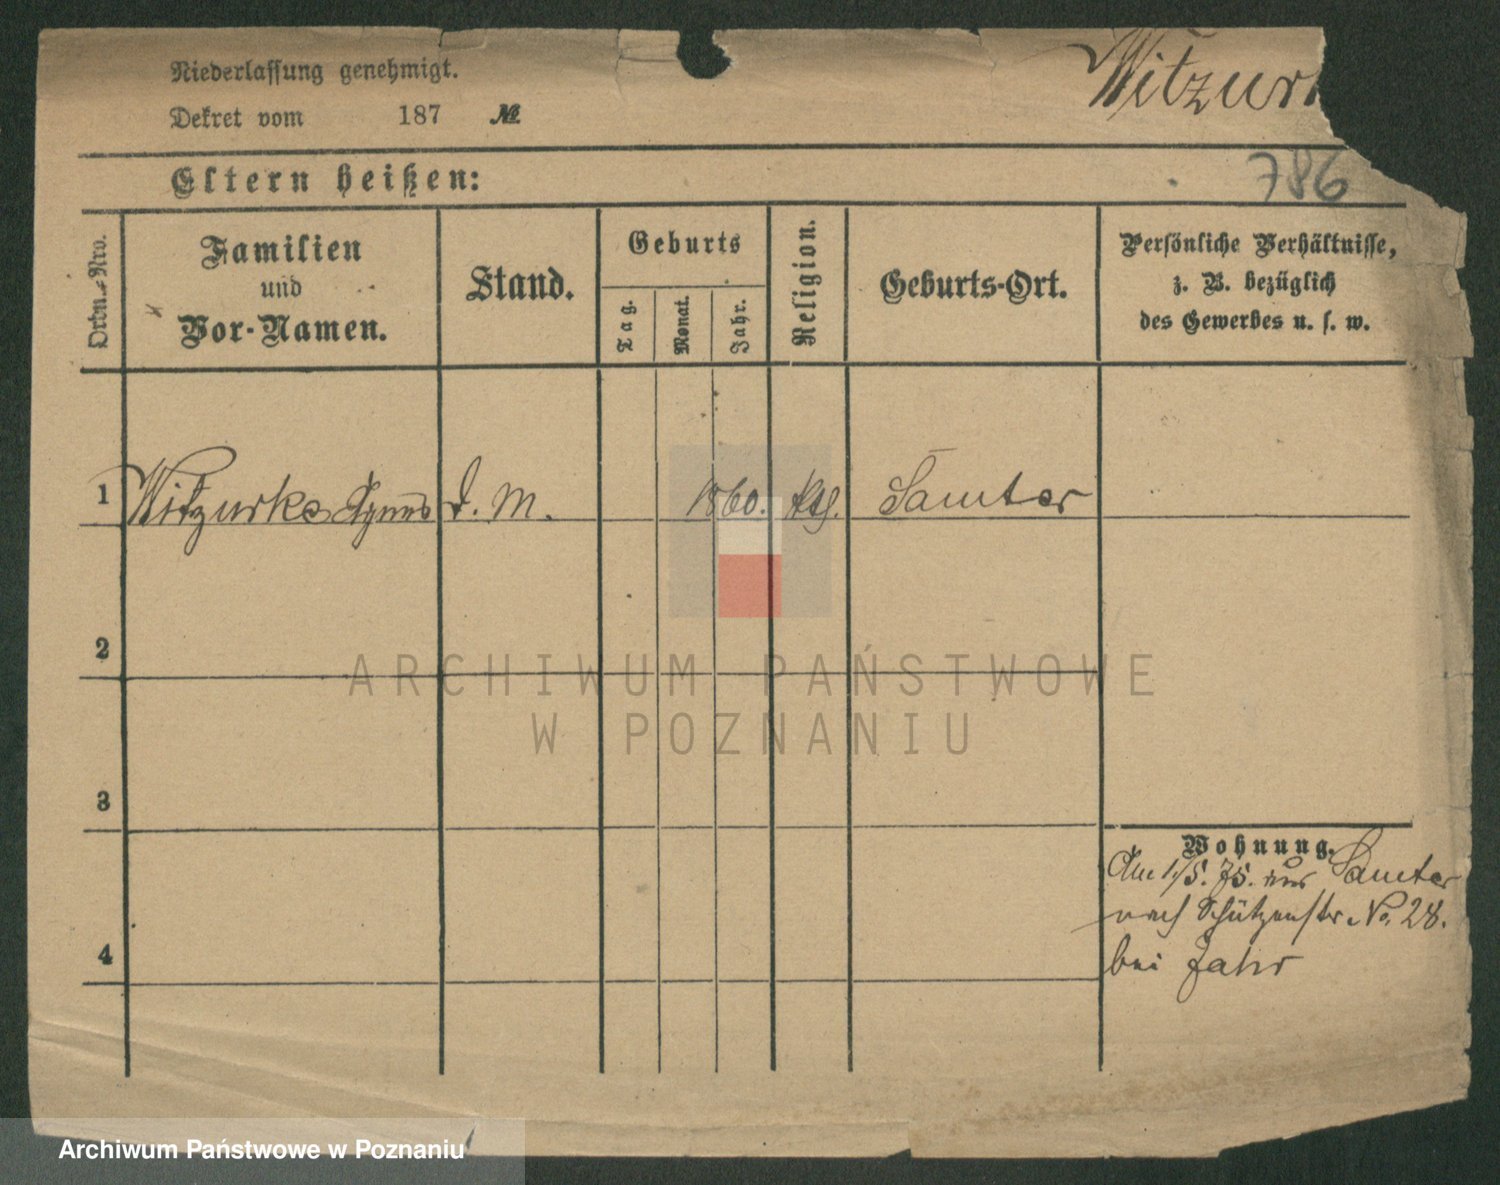 Niederlassung genehmigt.
Witzur
Dekret vom 187 №
786
Eltern heißen:
Ordn.-Nro.
Familien
und
Vor-Namen.
Stand.
Geburts
Tag.
Monat.
Jahr.
Religion.
Geburts-Ort.
Persönliche Verhältnisse,
z. B. bezüglich
des Gewerbes u. s. w.
1 Witzurke Agnes D. M. 1860. kth. Samter
2
3
4
Wohnung.
Am 1/5. 75. aus Samter
nach Schützenstr. No. 28.
bei Jahr
ARCHIWUM PAŃSTWOWE
W POZNANIU
Archiwum Państwowe w Poznaniu